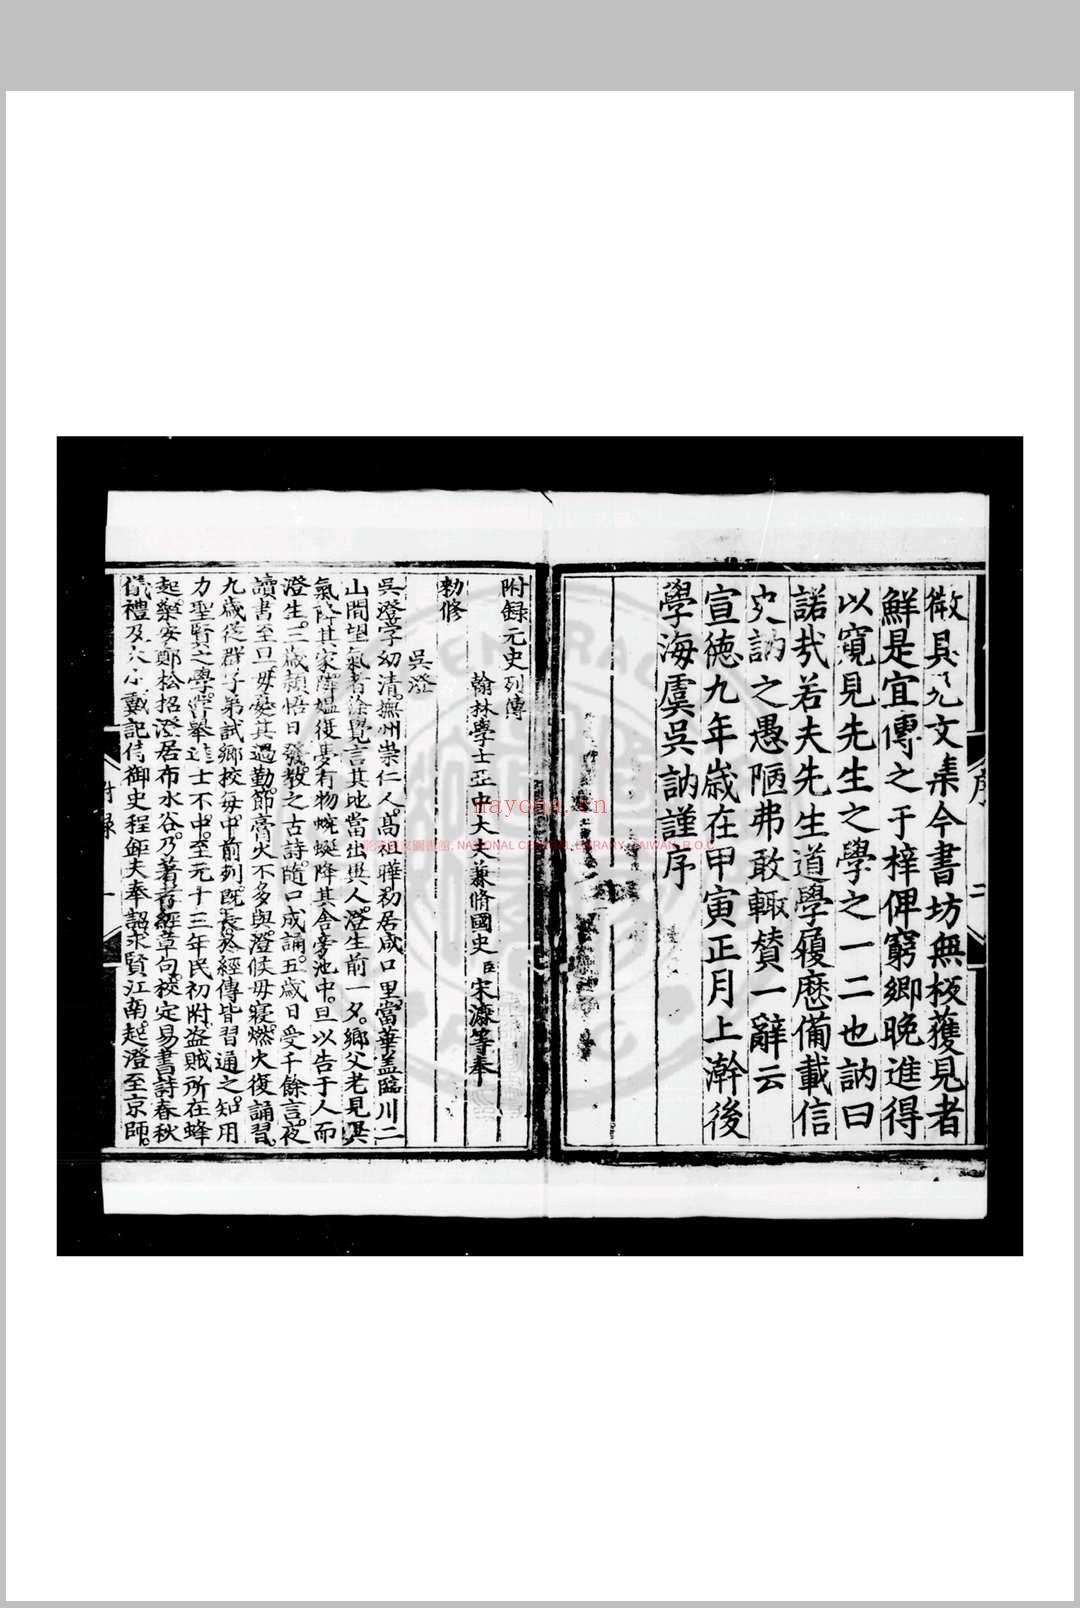 序
二
文集今書坊無板獲見者
鮮是宜傳之于梓俾窮鄉晚進得
以窺見先生之學之一二也訥曰
諾㢤若夫先生道學履歷備載信
史訥之愚陋弗敢輙贊一辭云
宣德九年歲在甲寅正月上澣後
學海虞吳訥謹序
附録元史列傳
翰林學士亞中大夫兼脩國史臣宋濂等奉
勑修
吳澄
吳澄字幼清撫州崇仁人高祖曄初居咸口里當華盖臨川二
山間望氣者徐覺言其地當出異人澄生前一夕鄉父老見異
氣降其家隣媪復夢有物蜿蜒降其舍旁池中旦以告于人而
澄生三歲頴悟日發教之古詩隨口成誦五歲日受千餘言夜
讀書至旦母憂其過勤節膏火不多與澄候母寢燃火復誦習
九歲從群子弟試鄉校每中前列既長於經傳皆習通之知用
力聖賢之學嘗舉進士不中至元十三年民初附盗賊所在蜂
起樂安鄭松招澄居布水谷乃著孝經章句校定易書詩春秋
儀禮及大小戴記侍御史程鉅夫奉詔求賢江南起澄至京師
附録
一
nayona.cn
NATIONAL CENTRAL LIBRARY, TAIWAN, R.O.C.